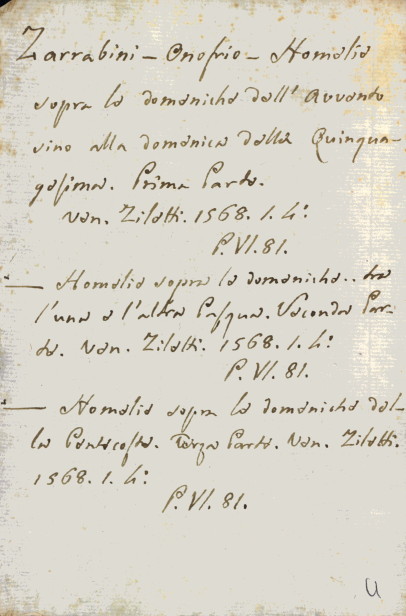 Zarrabini - Onofrio - Homelie
sopra le domeniche dell' Avvento
sino alla domenica della Quinqua-
gesima. Prima Parte.
Ven. Ziletti. 1568. 1. 4:
P. VI. 81.
— Homelie sopra le domeniche.. tra
l'una e l'altra Pasqua. Seconda Par-
te. Ven. Ziletti. 1568. 1. 4:
P. VI. 81.
— Homelie sopra le domeniche del-
la Pentecoste. Terza Parte. Ven. Ziletti.
1568. 1. 4:
P. VI. 81.